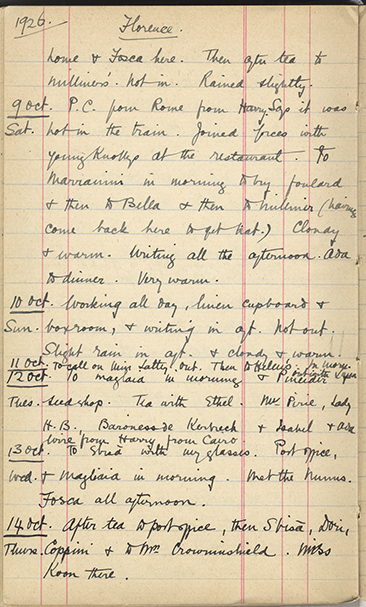 1926. Florence.
home & Tosca here. Then after tea to
milliners'. Not in. Rained slightly.
9 Oct. P.C. from Rome from Harry. Says it was
Sat. hot in the train. Joined forces with
young Knollys at the restaurant. To
in morning to buy foulard
& then to Bella & then to milliner (having
come back here to get hat.) Cloudy
& warm. Writing all the afternoon. Ada
to dinner. Very warm.
10 Oct. Working all day, linen cupboard &
Sun. boxroom, & writing in aft. Not out.
Slight rain in aft. & cloudy & warm.
11 Oct. To call on Miss out. Then to In morn.
12 Oct. To in morning & Pineider
Tues. seed shop. Tea with Ethel. Mrs Pirie, Lady
H.B., Baroness de & Isabel & Ada
Wire from Harry from Cairo.
13 Oct. To with my glasses. Post office,
Wed. & in morning. Met the Nunns.
Tosca all afternoon.
14 Oct. After tea to post office, then Sbisà, Doni,
Thurs. Coppini & to Mrs Crowninshield. Miss
Koon there.